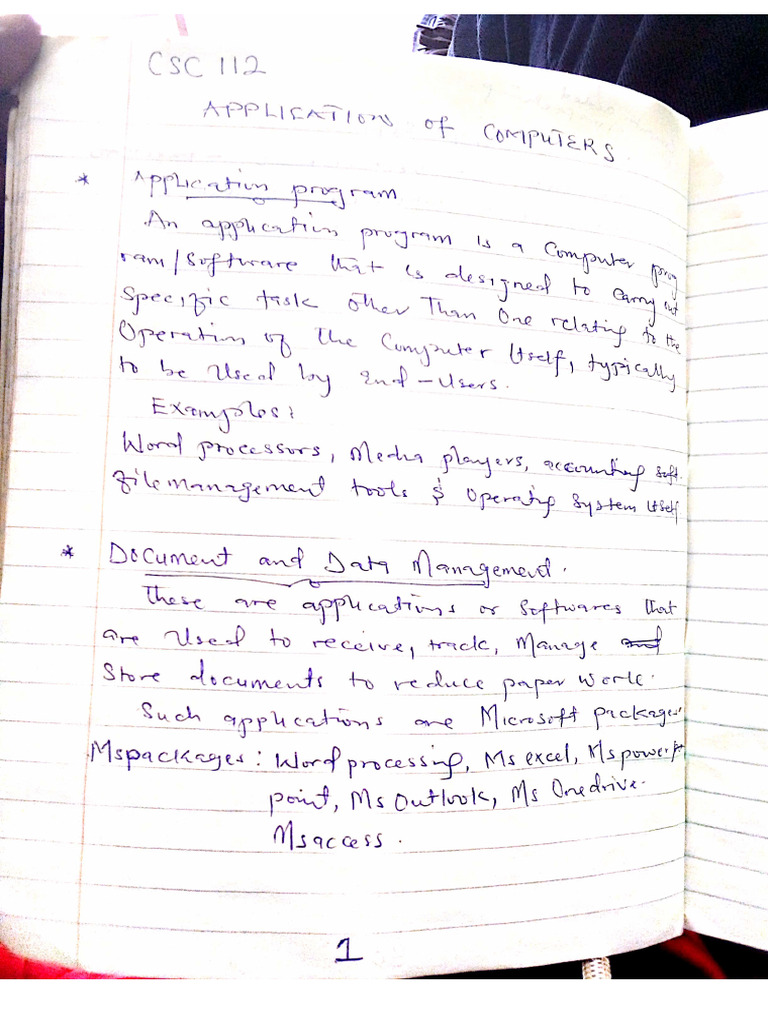 CSC 112
APPLICATIONS OF COMPUTERS.
* Application program
An application program is a Computer prog
ram/software that is designed to carry out
Specific task other Than One relating to the
Operation of the Computer Itself, typically
to be Used by End-Users.
Examples:
Word processors, Media players, accounting soft.
file management tools & Operating System Itself
* Document and Data Management.
These are applications or Softwares that
are Used to receive, track, Manage and
Store documents to reduce paper work.
Such applications are Microsoft packages.
Mspackages: Word processing, Ms excel, Ms power
point, Ms Outlook, Ms Onedrive.
Ms access.
1